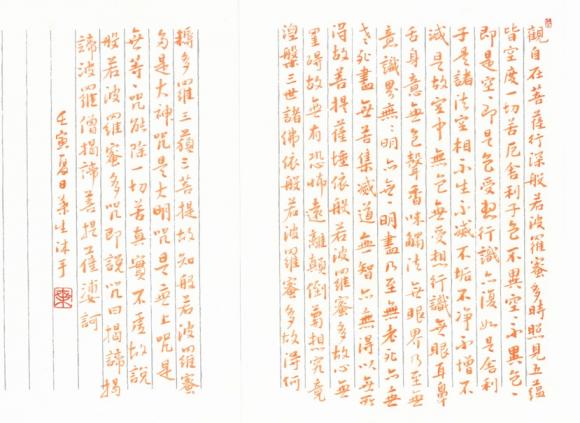 觀自在菩薩行深般若波羅蜜多時照見五蘊
皆空度一切苦厄舍利子色不異空〻不異色〻
即是空〻即是色受想行識亦復如是舍利
子是諸法空相不生不滅不垢不净不增不
減是故空中無色無受想行識無眼耳鼻
舌身意無色聲香味觸法無眼界乃至無
意識界無〻明亦無〻明盡乃至無老死亦無
老死盡無苦集滅道無智亦無得以無所
得故菩提薩埵依般若波羅蜜多故心無
罣碍故無有恐怖遠離顛倒夢想究竟
涅槃三世諸佛依般若波羅蜜多故得阿
耨多羅三藐三菩提故知般若波羅蜜
多是大神咒是大明咒是無上咒是
無等〻咒能除一切苦真實不虛故說
般若波羅蜜多咒即說咒曰揭諦揭
諦波羅僧揭諦菩提薩婆訶
壬寅夏日生沐手